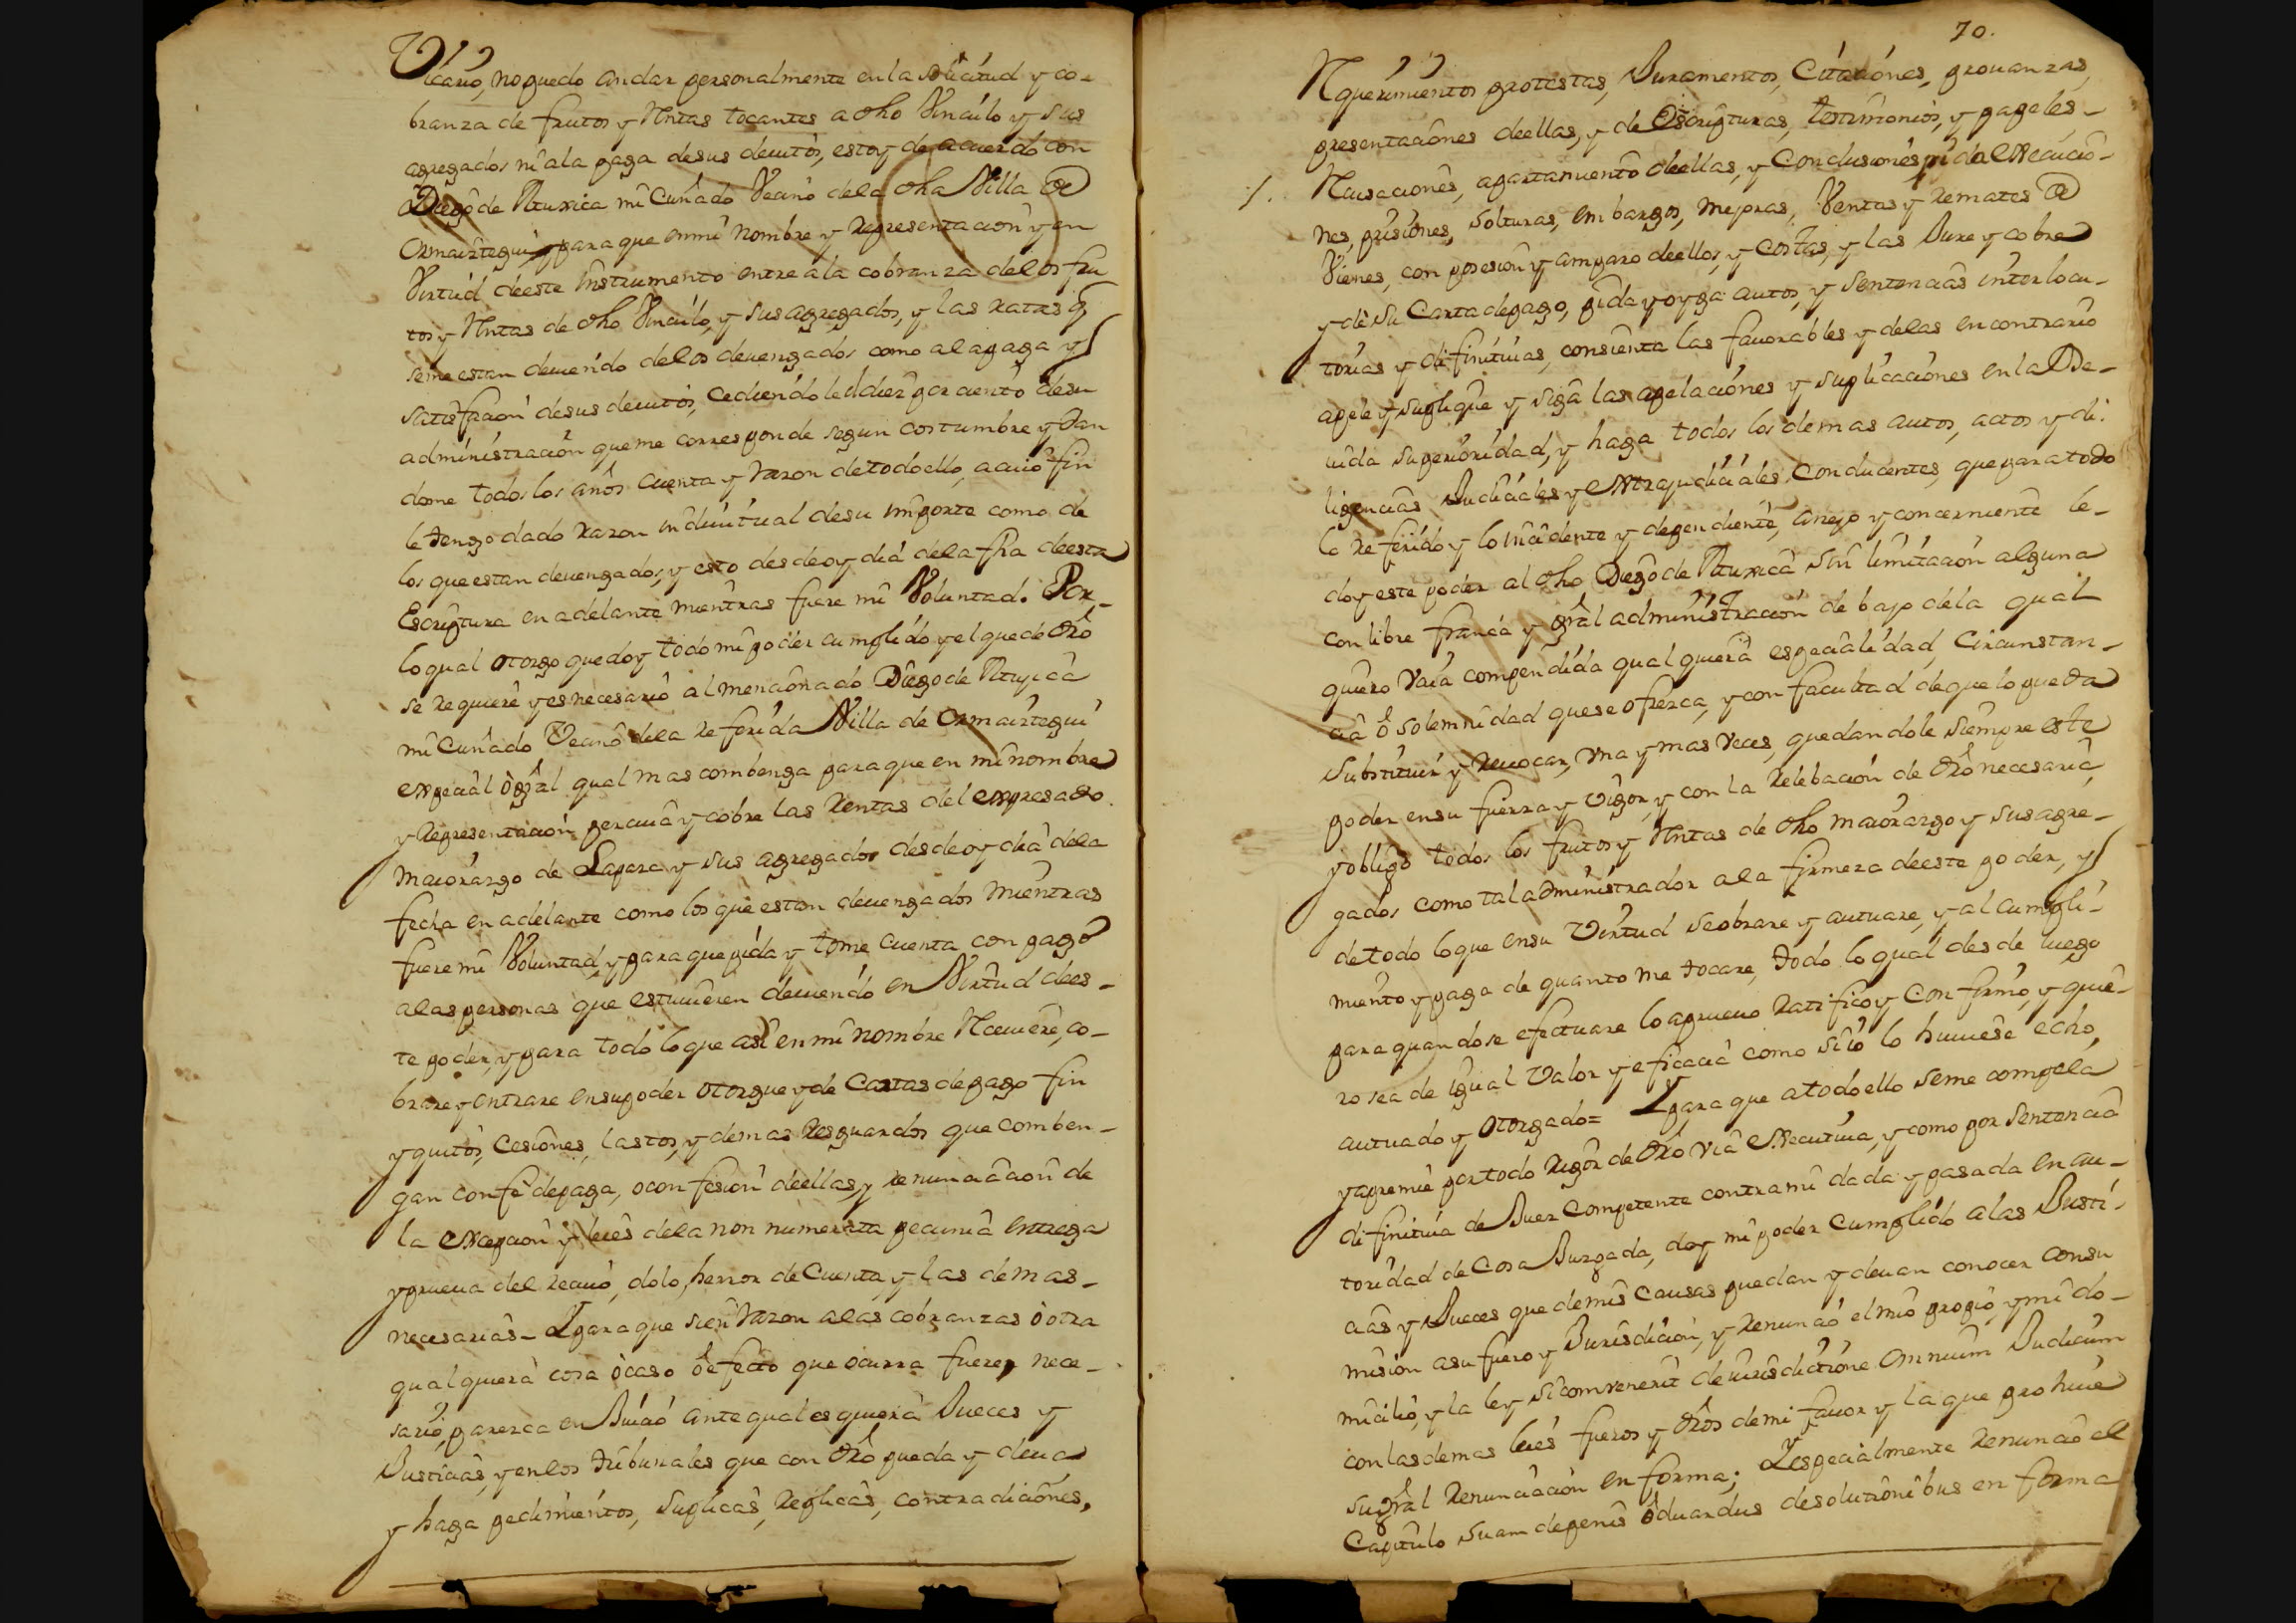 Vicario, no puedo andar personalmente en la solicitud y co-
branza de frutos y Rentas tocantes a dho Vinculo y sus
agregados ni ala paga desus deuitos, estoy de acuerdo con
Diego de Yturrica mi Cuñado Vecino dela dha Villa de
Ormaiztegui, para que enmi nombre y Representacion y en
Virtud deeste Instrumento entre ala cobranza delos fru
tos y Rentas de dho Vinculo, y sus agregados, y las ratas q
seme estan deuiendo delos deuengados como alapaga y
satisfacion desus deuitos, cediendole el diez por ciento desu
administracion queme corresponde segun costumbre y dan
dome todos los años cuenta y razon detodoello, acuio fin
le tengo dado razon indiuitual desu importe como de
los que estan deuengados, y esto desdeoy dia dela fha deesta
Escriptura en adelante mientras fuere mi Voluntad. Por
loqual otorgo quedoy todo mi poder cumplido y el que de dro
se requiere y es necesario al mencionado Diego de Yturrica
mi Cuñado Vecino dela referida Villa de Ormaiztegui
especial ò gral qual mas combenga paraque en mi nombre
y Representacion perciua y cobre las Rentas del expresado
maiorazgo de Lapaza y sus agregados desdeoy dia dela
fecha en adelante como los que estan deuengados mientras
fuere mi Voluntad, y para que pida y tome cuenta con pago
alas personas que estuuieren deuiendo en Virtud dees-
te poder, y para todo loque asi en mi nombre Receuiere, co-
brare y entrare ensupoder otorgue y de Cartas depago fin
y quitos, Cesiones, lastos, y demas Resguardos que comben-
gan con fe depaga, o confesion deellas, y renunciacion de
la excepcion y leies dela non numerata pecunia entrega
y prueua del reciuo, dolo, herror de Cuenta, y las demas-
necesarias- Y para que si en razon alas cobranzas ò otra
qualquiera cosa ò caso ò efecto que ocurra fuere, nece-
sario, parezca en Juicio ante qualesquiera Jueces y
Justicias, y enlos tribunales que con dro pueda y deua
y haga pedimientos, suplicas, Replicas, contradiciones,
70.
Requerimientos protestas, Juramentos, Citaciones, prouanzas,
presentaciones deellas, y de Escripturas, testimonios, y papeles-
Recusaciones, apartamiento deellas, y Conclusiones, pida execucio-
nes, prisiones, solturas, embargos, mejoras, Ventas y remates de
Vienes, con posesion y amparo deellos, y costas, y las Jure y cobre
y dè su Carta depago, pida y oyga autos, y Sentencias interlocu-
torias y difinitiuas, consienta las fauorables y delas en contrario
apele y suplique y siga las apelaciones y suplicaciones en la De-
uida superioridad, y haga todos los demas autos, actos y di-
ligencias Judiciales y extrajudiciales Conducentes, que para todo
lo referido y lo incidente y dependiente, anejo y concerniente le-
doy este poder al dho Diego de Yturrica sin limitacion alguna
con libre franca y gral administracion de bajo dela qual
quiero vaia compendida qualquiera especialidad, Circunstan-
cia ò solemnidad quese ofrezca, y con facultad deque lo pueda
Substituir y Reuocar, vna y mas veces, quedandole siempre este
poder ensu fuerza y vigor, y con la Relebacion de dro necesaria,
y obligo todos los frutos y Rentas de dho maiorazgo y sus agre-
gados como tal administrador ala firmeza deeste poder, y
detodo loque ensu virtud seobrare y autuare, y al cumpli-
miento y paga de quanto me tocare, todo lo qual desde luego
para quando se efectuare lo aprueuo ratifico y confirmo, y quie-
ro sea de igual valor y eficacia como si io lo huuiese echo,
autuado y otorgado= Y para que atodoello seme compela
y apremie por todo rigor de dro via executiua, y como por sentencia
difinitiua de Juez Competente contra mi dada y pasada en au-
toridad de Cosa Juzgada, doy mi poder Cumplido alas Justi-
cias y Jueces que demis causas puedan y deuan conocer consu
mision asu fuero y Jurisdicion, y Renuncio el mio propio, y mi do-
micilio, y la ley Si comvenerit de iurisdictione omnium Judicum
con las demas leies fueros y dros de mi fauor y la que prohiue
su gral renunciacion en forma; Y especialmente Renuncio el
Capitulo suam de penis Oduardus desolutionibus en forma